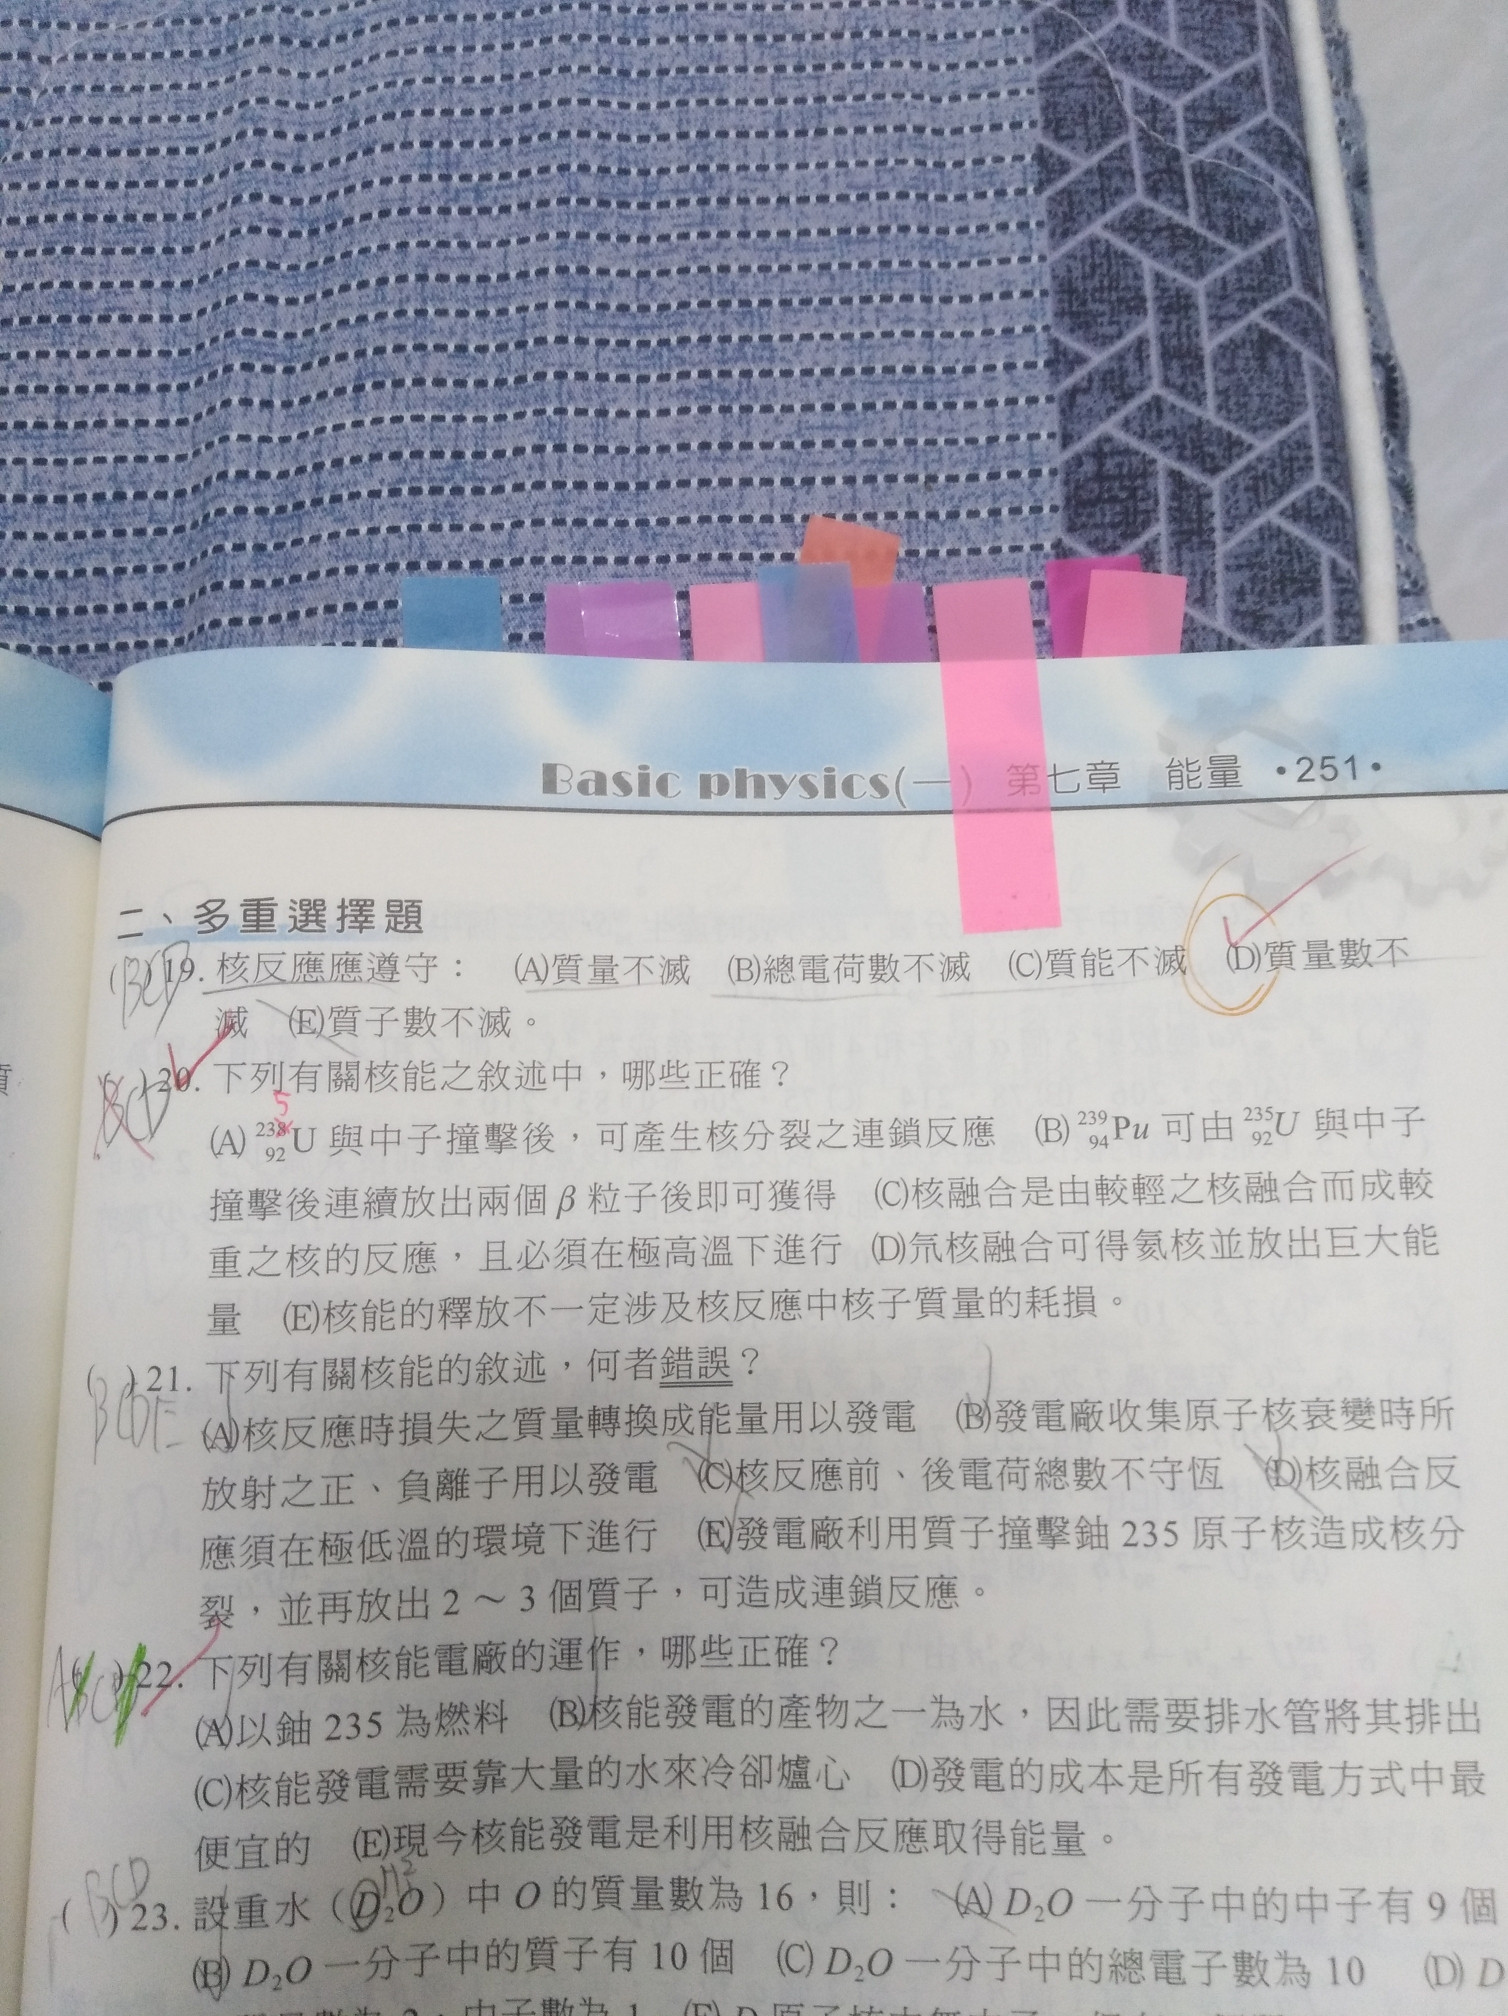 Basic physics(一) 第七章 能量 •251•
二、多重選擇題
(BCD)19. 核反應應遵守： (A)質量不滅 (B)總電荷數不滅 (C)質能不滅 (D)質量數不
滅 (E)質子數不滅。
20. 下列有關核能之敘述中，哪些正確？
5
(A) ²³⁸₉₂U 與中子撞擊後，可產生核分裂之連鎖反應 (B) ²³⁹₉₄Pu 可由 ²³⁵₉₂U 與中子
撞擊後連續放出兩個 β 粒子後即可獲得 (C)核融合是由較輕之核融合而成較
重之核的反應，且必須在極高溫下進行 (D)氘核融合可得氦核並放出巨大能
量 (E)核能的釋放不一定涉及核反應中核子質量的耗損。
(BCDE)21. 下列有關核能的敘述，何者錯誤？
(A)核反應時損失之質量轉換成能量用以發電 (B)發電廠收集原子核衰變時所
放射之正、負離子用以發電 (C)核反應前、後電荷總數不守恆 (D)核融合反
應須在極低溫的環境下進行 (E)發電廠利用質子撞擊鈾 235 原子核造成核分
裂，並再放出 2～3 個質子，可造成連鎖反應。
22. 下列有關核能電廠的運作，哪些正確？
(A)以鈾 235 為燃料 (B)核能發電的產物之一為水，因此需要排水管將其排出
(C)核能發電需要靠大量的水來冷卻爐心 (D)發電的成本是所有發電方式中最
便宜的 (E)現今核能發電是利用核融合反應取得能量。
BCD
( )23. 設重水（D₂O）中 O 的質量數為 16，則： (A) D₂O 一分子中的中子有 9 個
(B) D₂O 一分子中的質子有 10 個 (C) D₂O 一分子中的總電子數為 10 (D) D